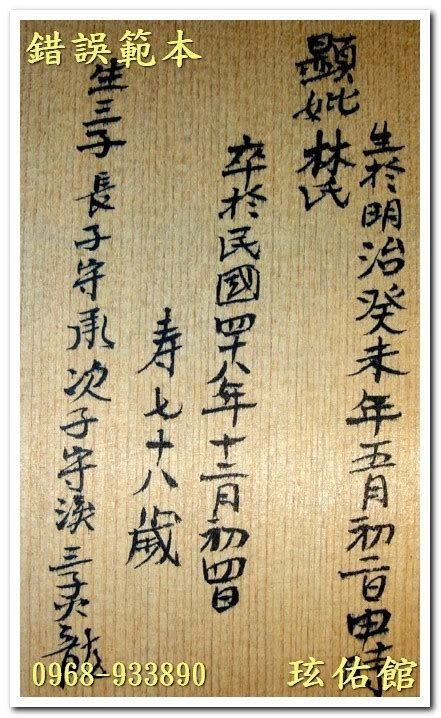 錯誤範本
生於明治癸未年五月初二日申時
顯妣林氏
卒於民國四十八年十二月初四日
寿七十八歲
生三子長子守承次子守漢三子火龍
0968-933890
玹佑館